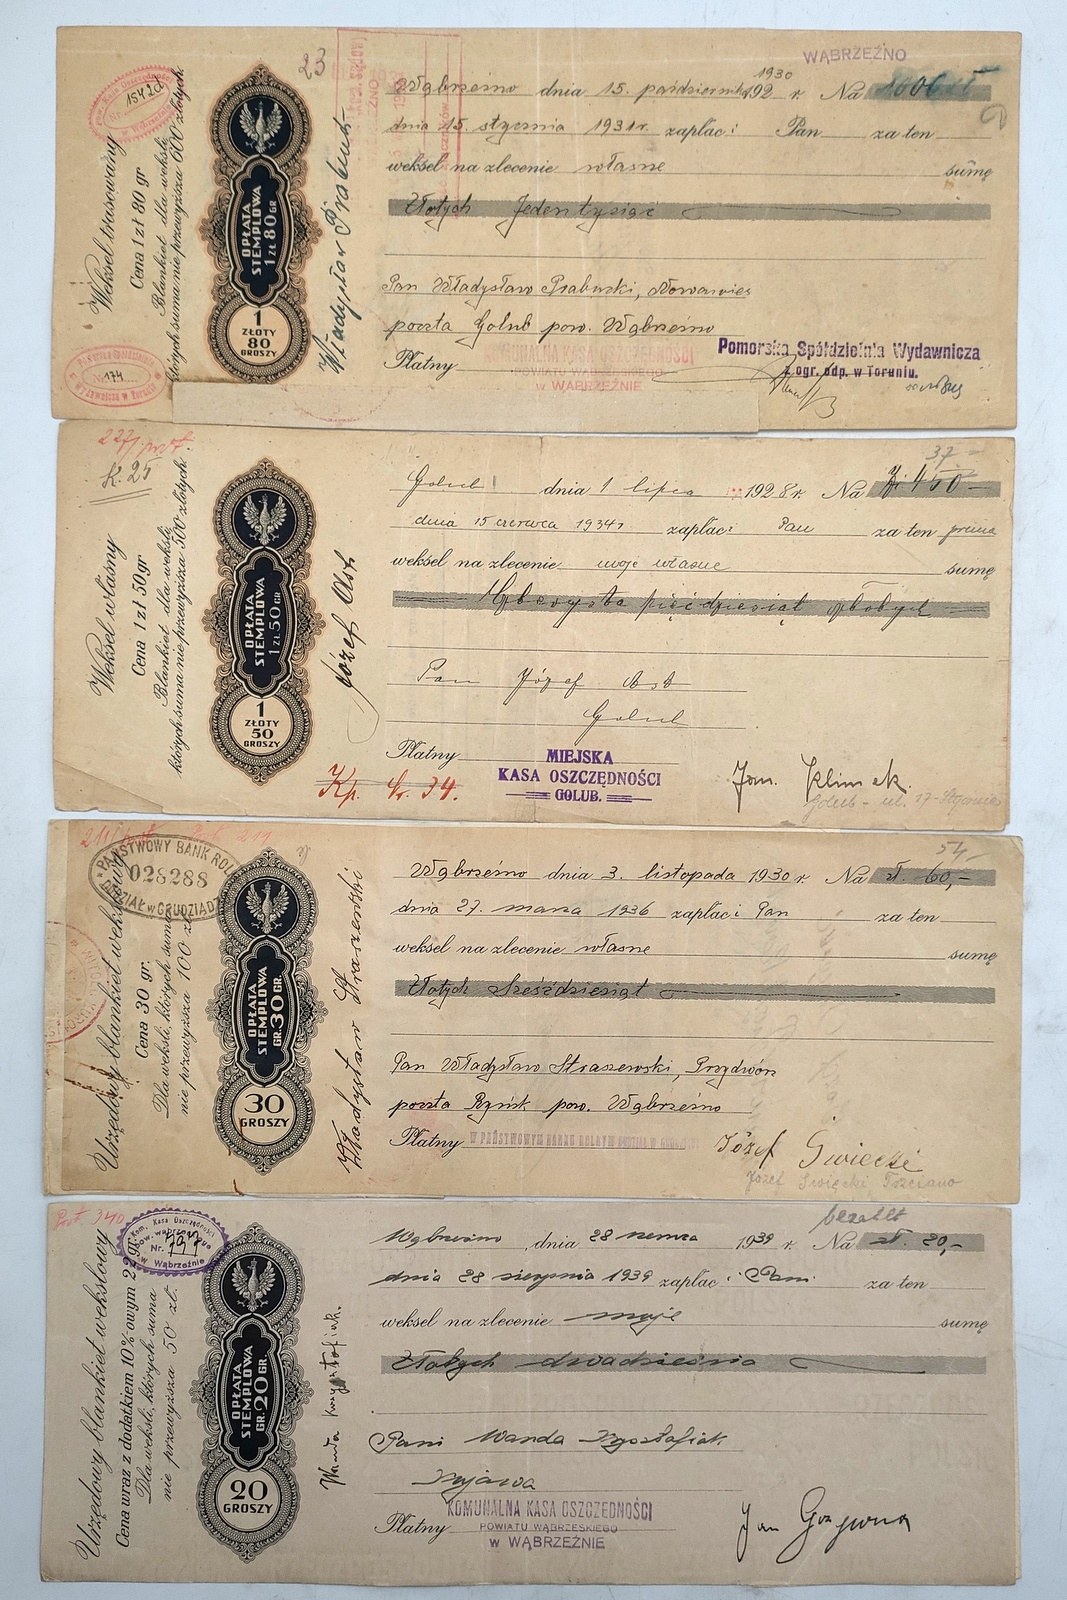 WĄBRZEŹNO
23
1542d
Weksel trasowany
Cena 1 zł 80 gr
Blankiet dla weksli,
których suma nie przewyższa 600 złotych
OPŁATA
STEMPLOWA
1 ZŁ 80 GR
1
ZŁOTY
80
GROSZY
174
Wąbrzeźno dnia 15. października 192 1930 r. Na
dnia 15. stycznia 1931 r. zapłac i Pan za ten
weksel na zlecenie własne sumę
Złotych Jedentysiąc
Pan Władysław Prabucki, Nowawieś
poczta Golub pow. Wąbrzeźno
Płatny KOMUNALNA KASA OSZCZĘDNOŚCI
POWIATU WĄBRZESKIEGO
w WĄBRZEŹNIE
Pomorska Spółdzielnia Wydawnicza
z ogr. odp. w Toruniu.
K. 25
37
Weksel własny
Cena 1 zł 50 gr
Blankiet dla weksli,
których suma nie przewyższa 500 złotych.
OPŁATA
STEMPLOWA
1 ZŁ 50 GR
1
ZŁOTY
50
GROSZY
Józef Ost
Golub dnia 1 lipca 1928 r. Na Zł 450
dnia 15 czerwca 1934 r zapłac: Pan za ten prima
weksel na zlecenie moje własne sumę
pięćdziesiąt złotych
Pan Józef Ost
Golub
Płatny MIEJSKA
KASA OSZCZĘDNOŚCI
GOLUB.
Jan Klimek
PAŃSTWOWY BANK ROLNY
028288
ODDZIAŁ w GRUDZIĄDZU
54
Urzędowy blankiet wekslowy
Cena 30 gr.
Dla weksli, których suma
nie przewyższa 100 zł.
OPŁATA
STEMPLOWA
GR. 30 GR.
30
GROSZY
Władysław Straszewski
Wąbrzeźno dnia 3. listopada 1930 r. Na zł. 60,-
dnia 27. marca 1936 zapłac i Pan za ten
weksel na zlecenie własne sumę
Złotych Sześćdziesiąt
Pan Władysław Straszewski, Przydwórz
poczta Ryńsk pow. Wąbrzeźno
Płatny
Józef Święcki
Józef Święcki
Kom. Kasa Oszczędności
pow. wąbrzeskiego
Nr.
w Wąbrzeźnie
Urzędowy blankiet wekslowy
Cena wraz z dodatkiem 10%-owym 2 gr.
Dla weksli, których suma
nie przewyższa 50 zł.
OPŁATA
STEMPLOWA
GR. 20 GR.
20
GROSZY
Wanda Krzysztofiak.
bezahlt
Wąbrzeźno, dnia 28 czerwca 1939 r. Na zł. 20,-
dnia 28 sierpnia 1939 zapłac i Pani za ten
weksel na zlecenie moje sumę
Złotych dwadzieścia
Pani Wanda Krzysztofiak
Płatny KOMUNALNA KASA OSZCZĘDNOŚCI
POWIATU WĄBRZESKIEGO
w WĄBRZEŹNIE
Jan